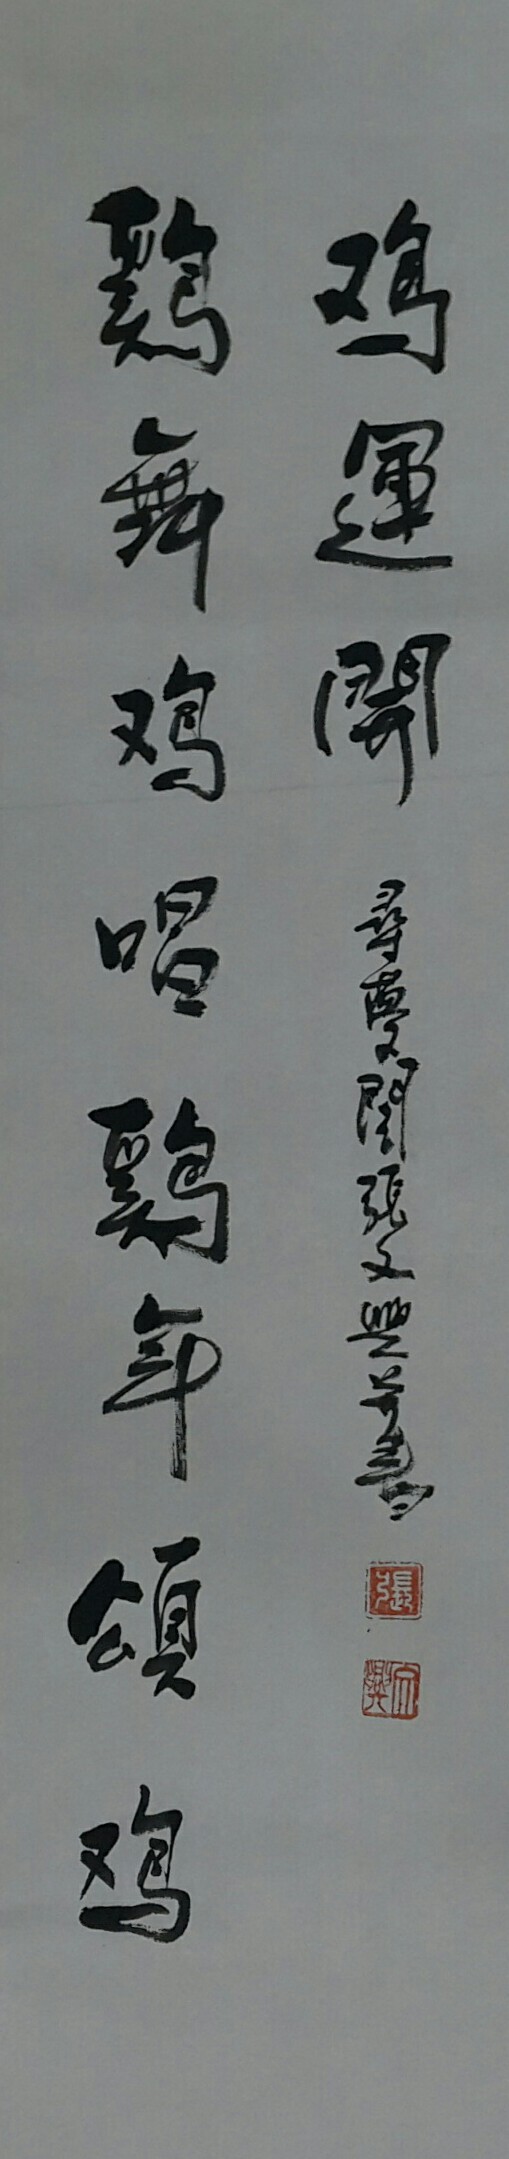 鷄舞鸡唱鷄年頌鸡
鸡運開
尋夢閣張文興并書
張
文興